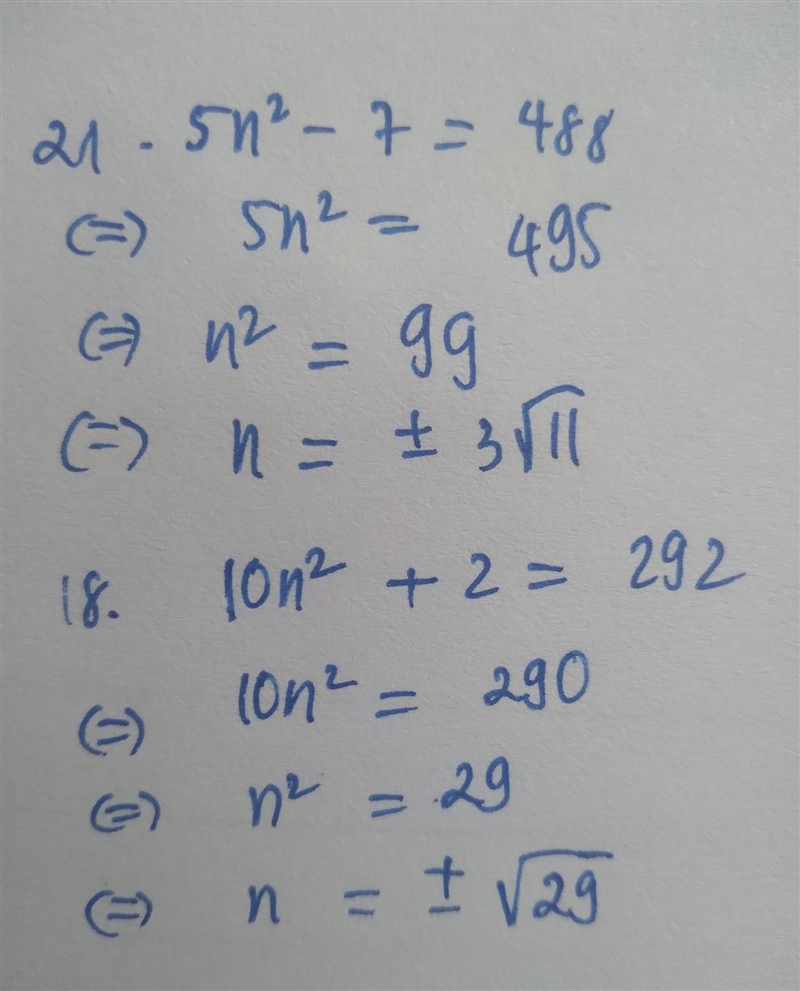 21. 5n² - 7 = 488
(=) 5n² = 495
(=) n² = 99
(=) n = ± 3√11
18. 10n² + 2 = 292
(=) 10n² = 290
(=) n² = 29
(=) n = ± √29